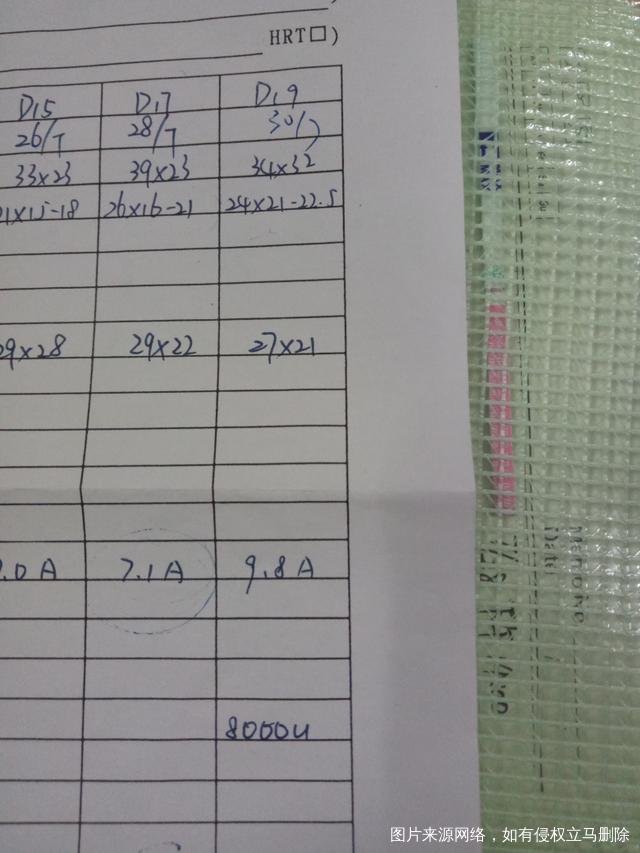 HRT□)
D15 D17 D19
26/7 28/7 30/7
33x23 39x23 34x32
21x15-18 26x16-21 24x21-22.5
29x28 29x22 27x21
.0 A 7.1 A 9.8 A
8000u
图片来源网络，如有侵权立马删除